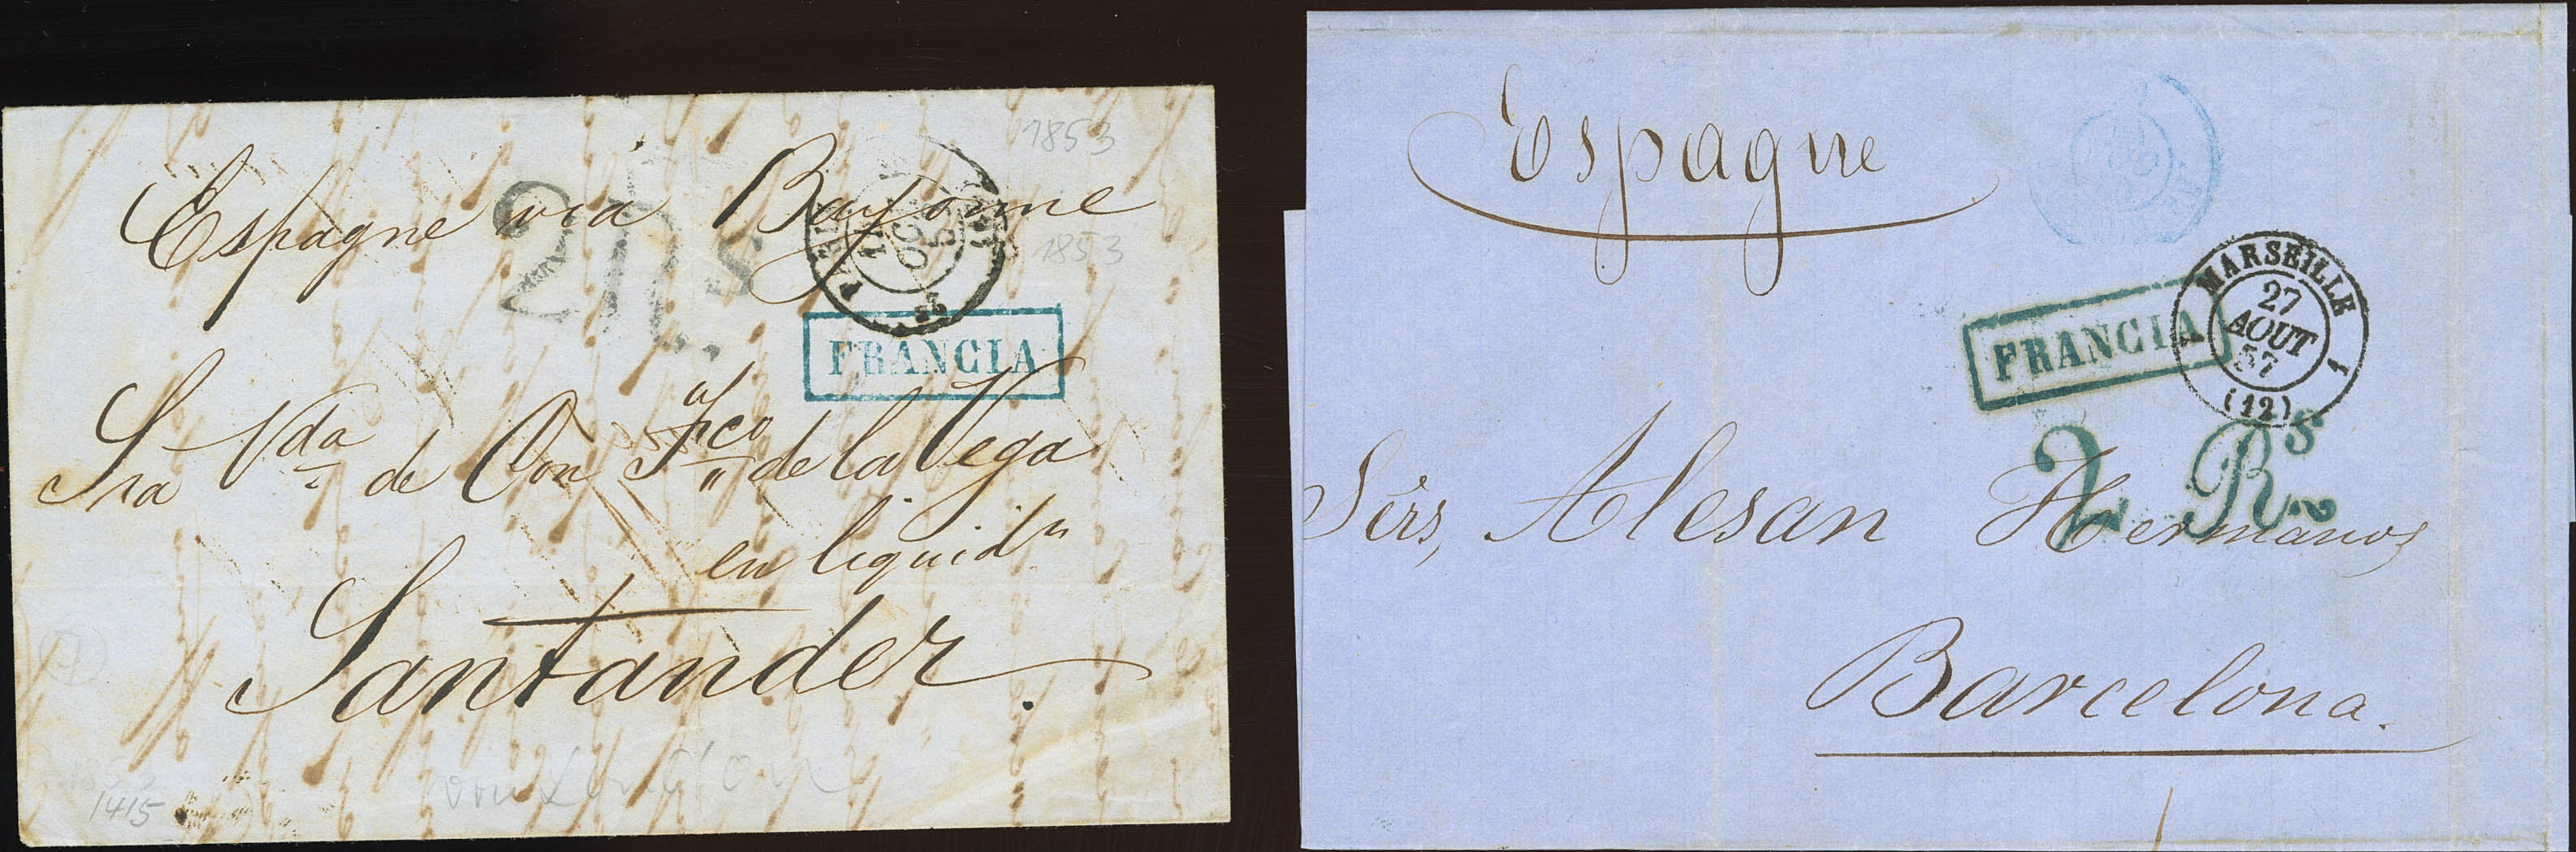 1853
Espagne via Bayonne
2 Rs
OC
5
53
1853
FRANCIA
Sra Vda de Don Fco de la Vega
en liquidn
Santander.
1415
Espagne
MARSEILLE
27
AOUT
57
1
(12)
FRANCIA
2 Rs
Sers, Alesan Hermanos
Barcelona.